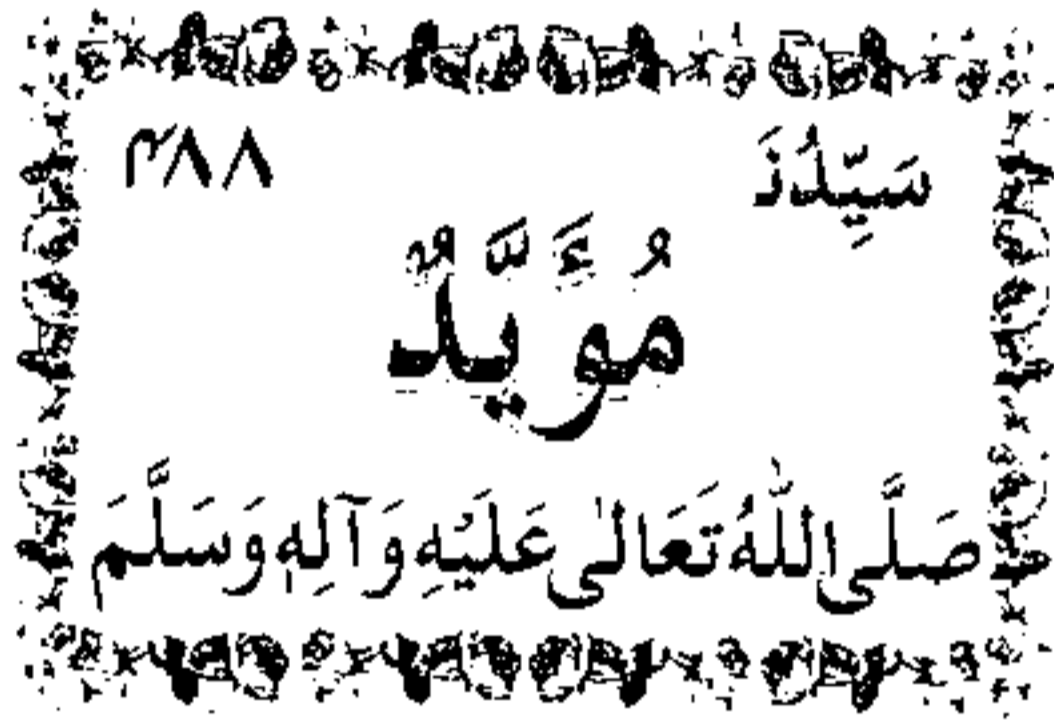 سَيِّدُنَ ٣٨٨
مُؤَيَّدٌ
صَلَّى اللّٰهُ تَعَالٰى عَلَيْهِ وَآلِهٖ وَسَلَّمَ